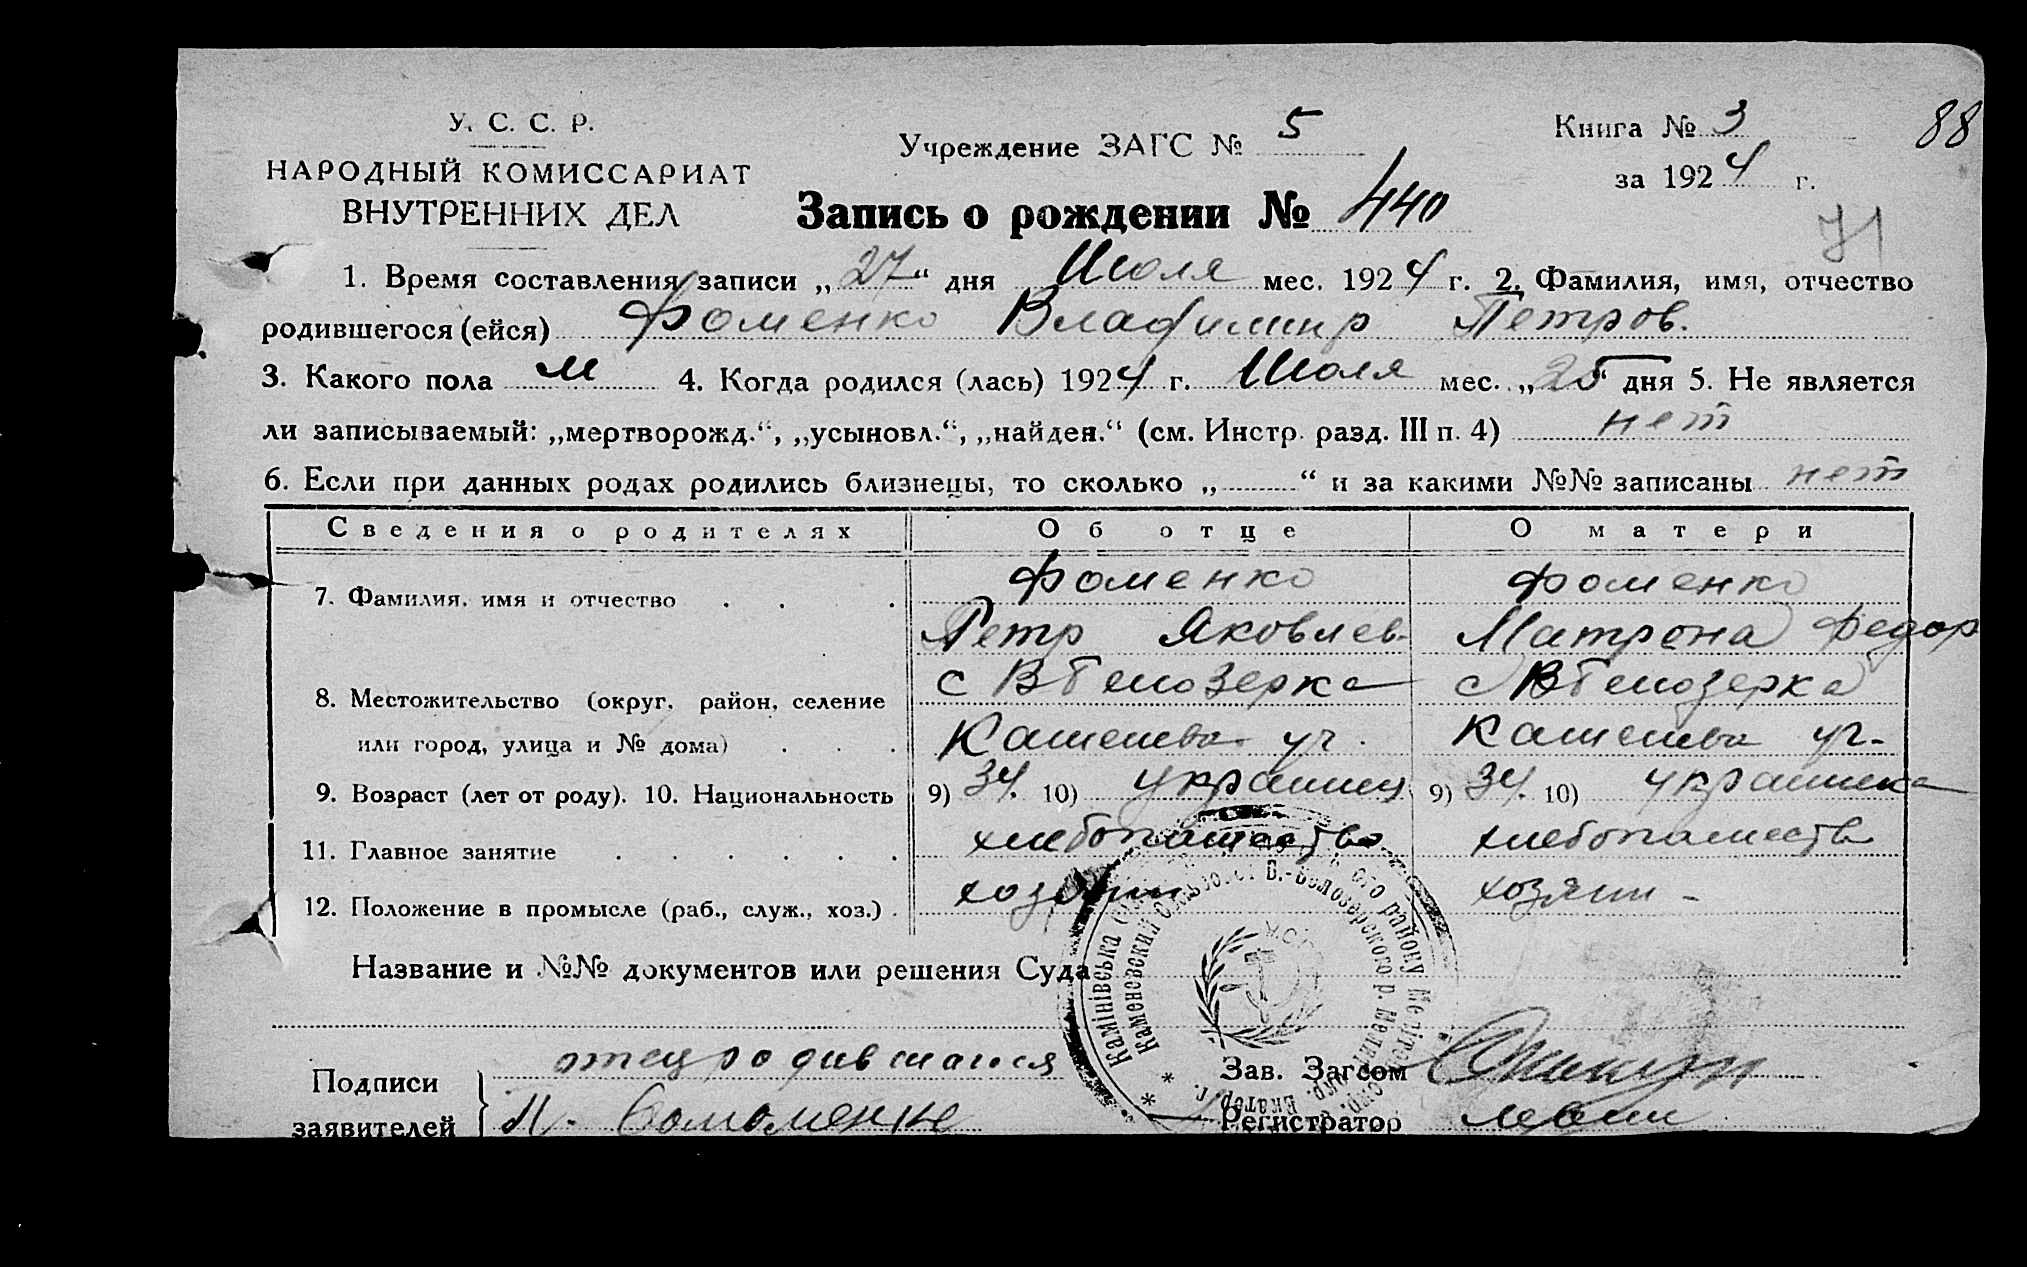 У. С. С. Р.
НАРОДНЫЙ КОМИССАРИАТ
ВНУТРЕННИХ ДЕЛ
Учреждение ЗАГС № 5
Книга № 3
88
за 1924 г.
Запись о рождении № 440
71
1. Время составления записи „27“ дня Июля мес. 1924 г. 2. Фамилия, имя, отчество
родившегося (ейся) Фоменко Владимир Петров.
3. Какого пола м 4. Когда родился (лась) 1924 г. Июля мес. „25“ дня 5. Не является
ли записываемый: „мертворожд.“, „усыновл.“, „найден.“ (см. Инстр. разд. III п. 4) нет
6. Если при данных родах родились близнецы, то сколько „ “ и за какими №№ записаны нет
Сведения о родителях Об отце О матери
7. Фамилия, имя и отчество Фоменко Фоменко
Петр Яковлев. Матрона Федор
8. Местожительство (округ, район, селение с ВБелозерка с ВБелозерка
или город, улица и № дома) уч. уч.
9. Возраст (лет от роду). 10. Национальность 9) 34. 10) украинец 9) 34. 10) украинка
11. Главное занятие хлебопашество хлебопашеств
12. Положение в промысле (раб., служ., хоз.) хозяин хозяин -
Название и №№ документов или решения Суда
Подписи
заявителей
Зав. Загсом
Регистратор Левин